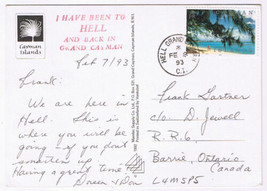 I HAVE BEEN TO
HELL
AND BACK IN
GRAND CAYMAN
Cayman
Islands
Feb 7/93
Frank:
We are here in
Hell. This is
where you will be
going if you don't
smarten up.
Having a great time
Doreen & Don
HELL GRAND
FE 8
93
C.I.
Frank Gartner
c/o D. Jewell
R.R.6,
Barrie, Ontario
Canada
L4M5P5